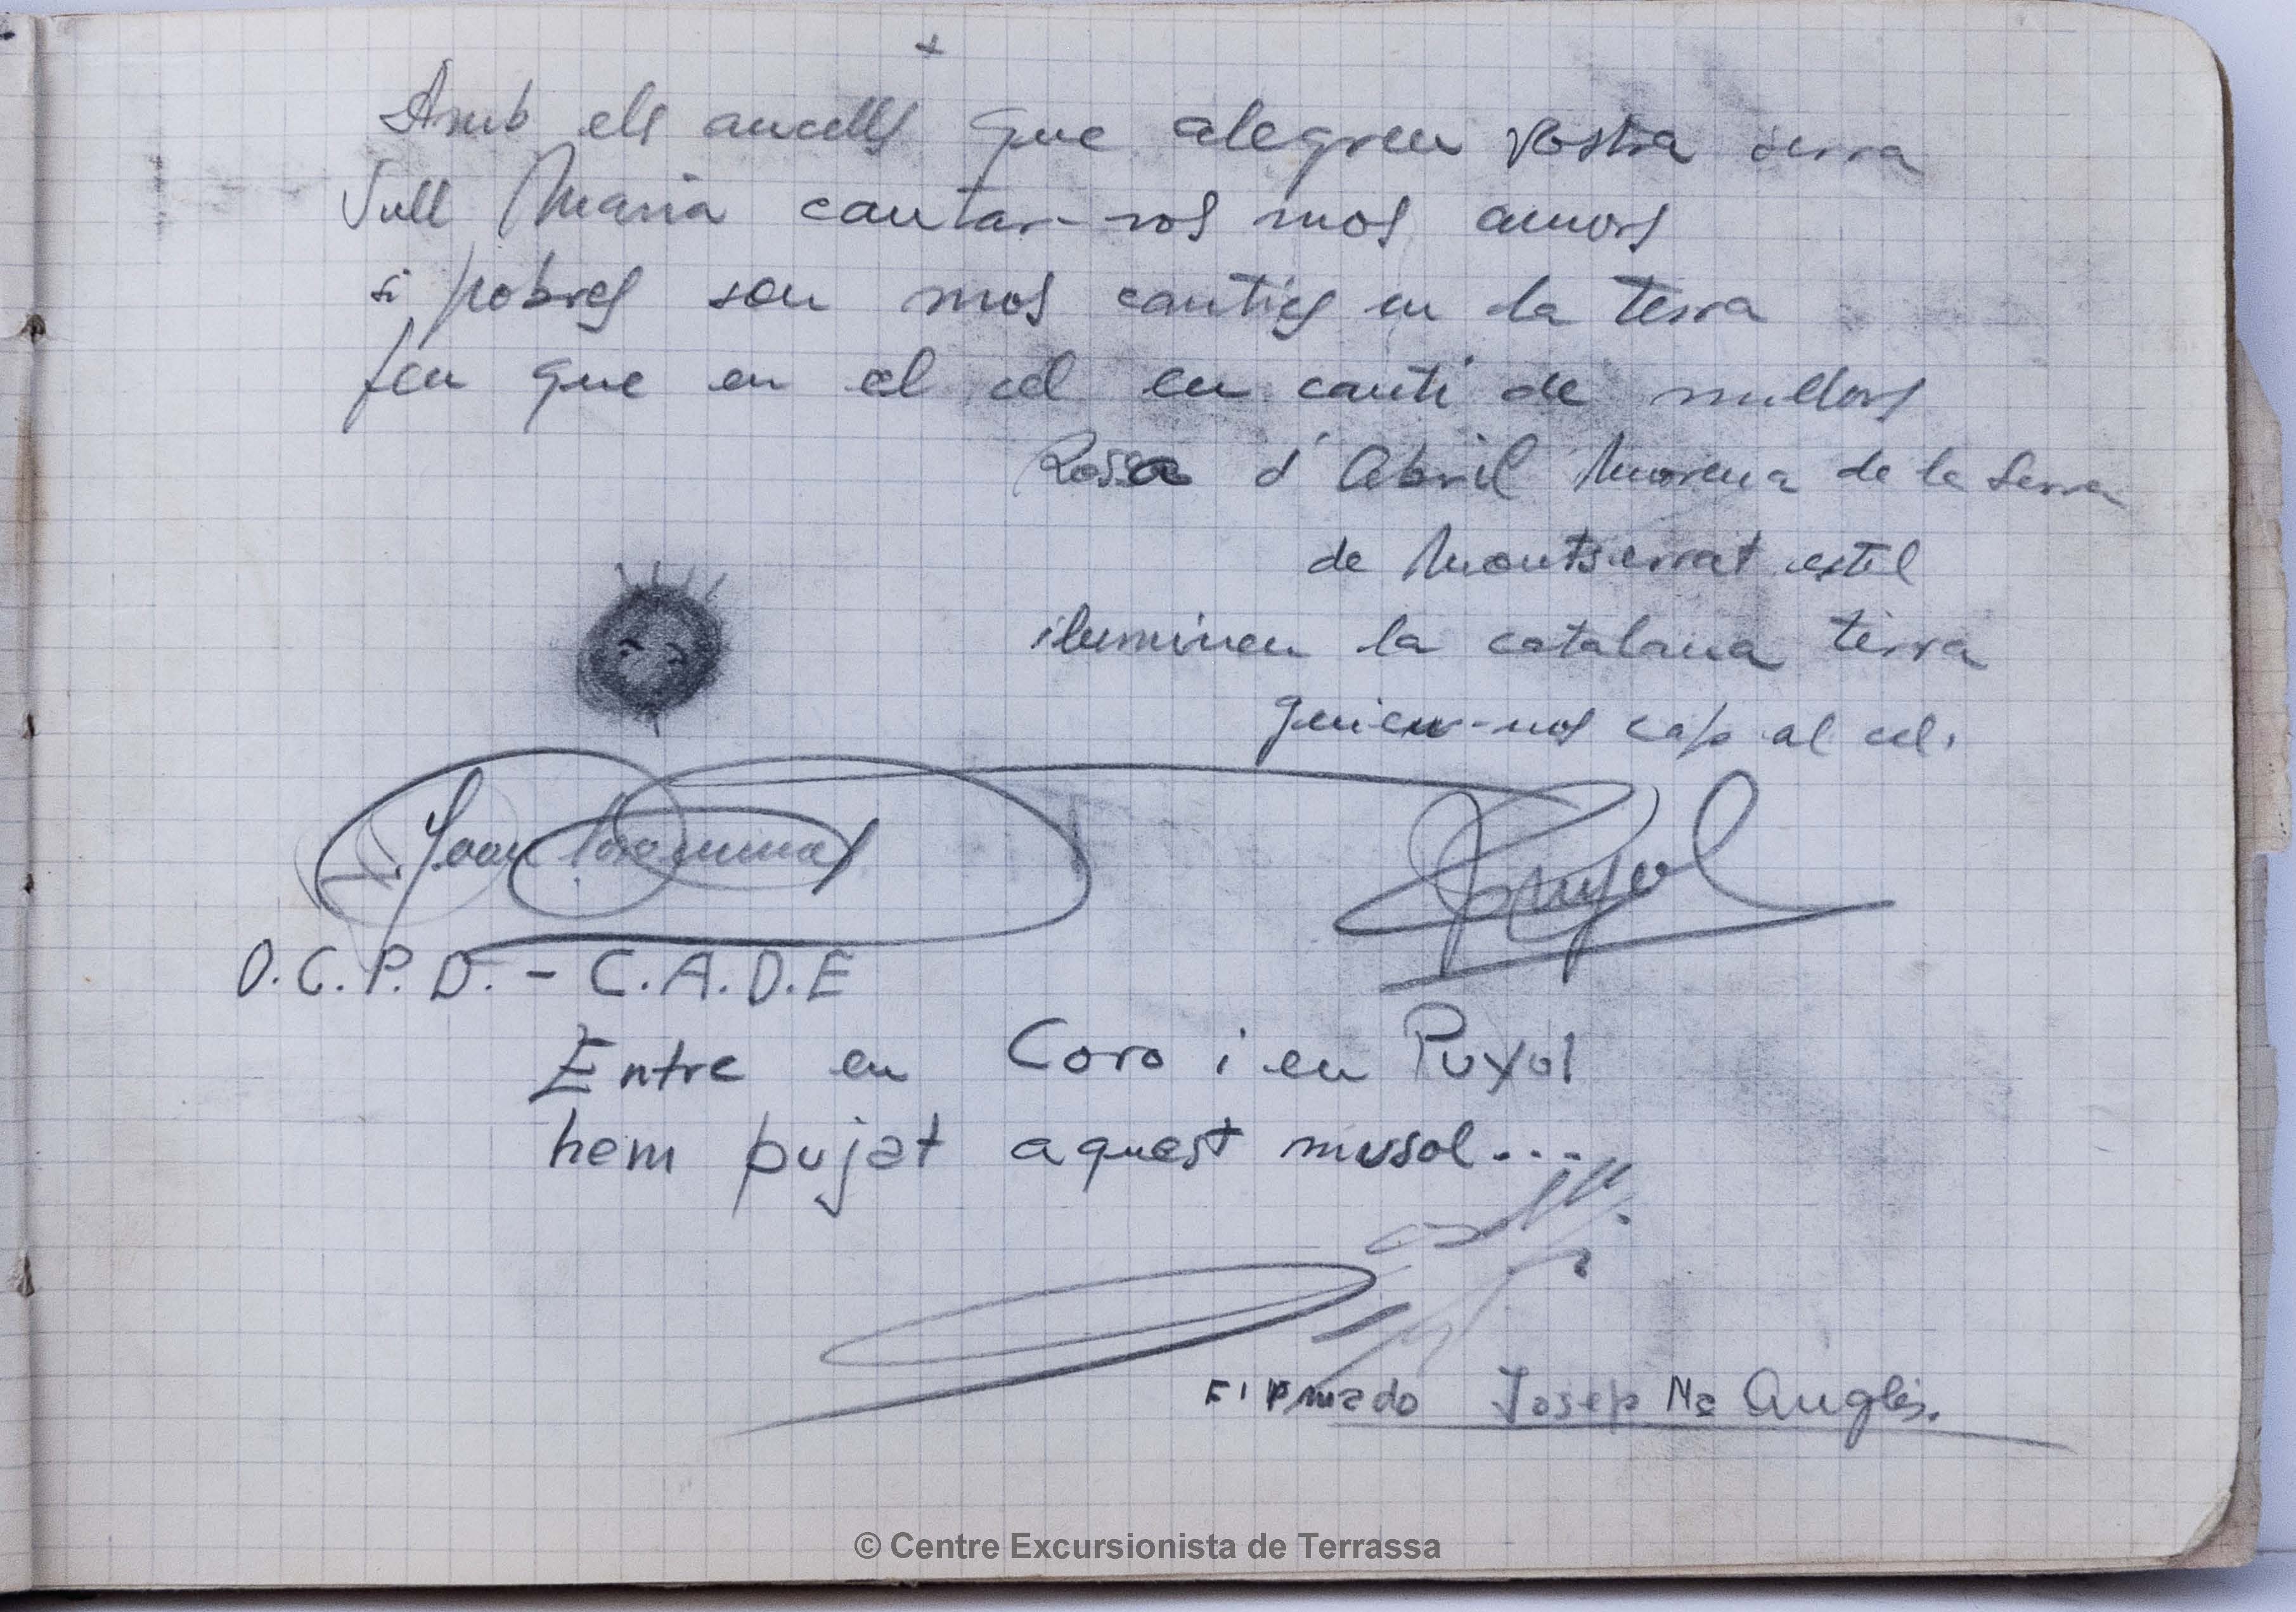 Amb els aucells que alegren vostra serra
Vull Maria cantar-vos mos amors
si pobres son mos cantics en la terra
feu que en el cel en canti de millors
Rossa d'Abril Morena de la Serra
de Montserrat estel
ilumineu la catalana terra
guieu-nos cap al cel.
Joan
Puyol
O.C.P.D. - C.A.D.E
Entre en Coro i en Puyol
hem pujat aquest mussol....
Firmado Josep Mª Anglés.
© Centre Excursionista de Terrassa